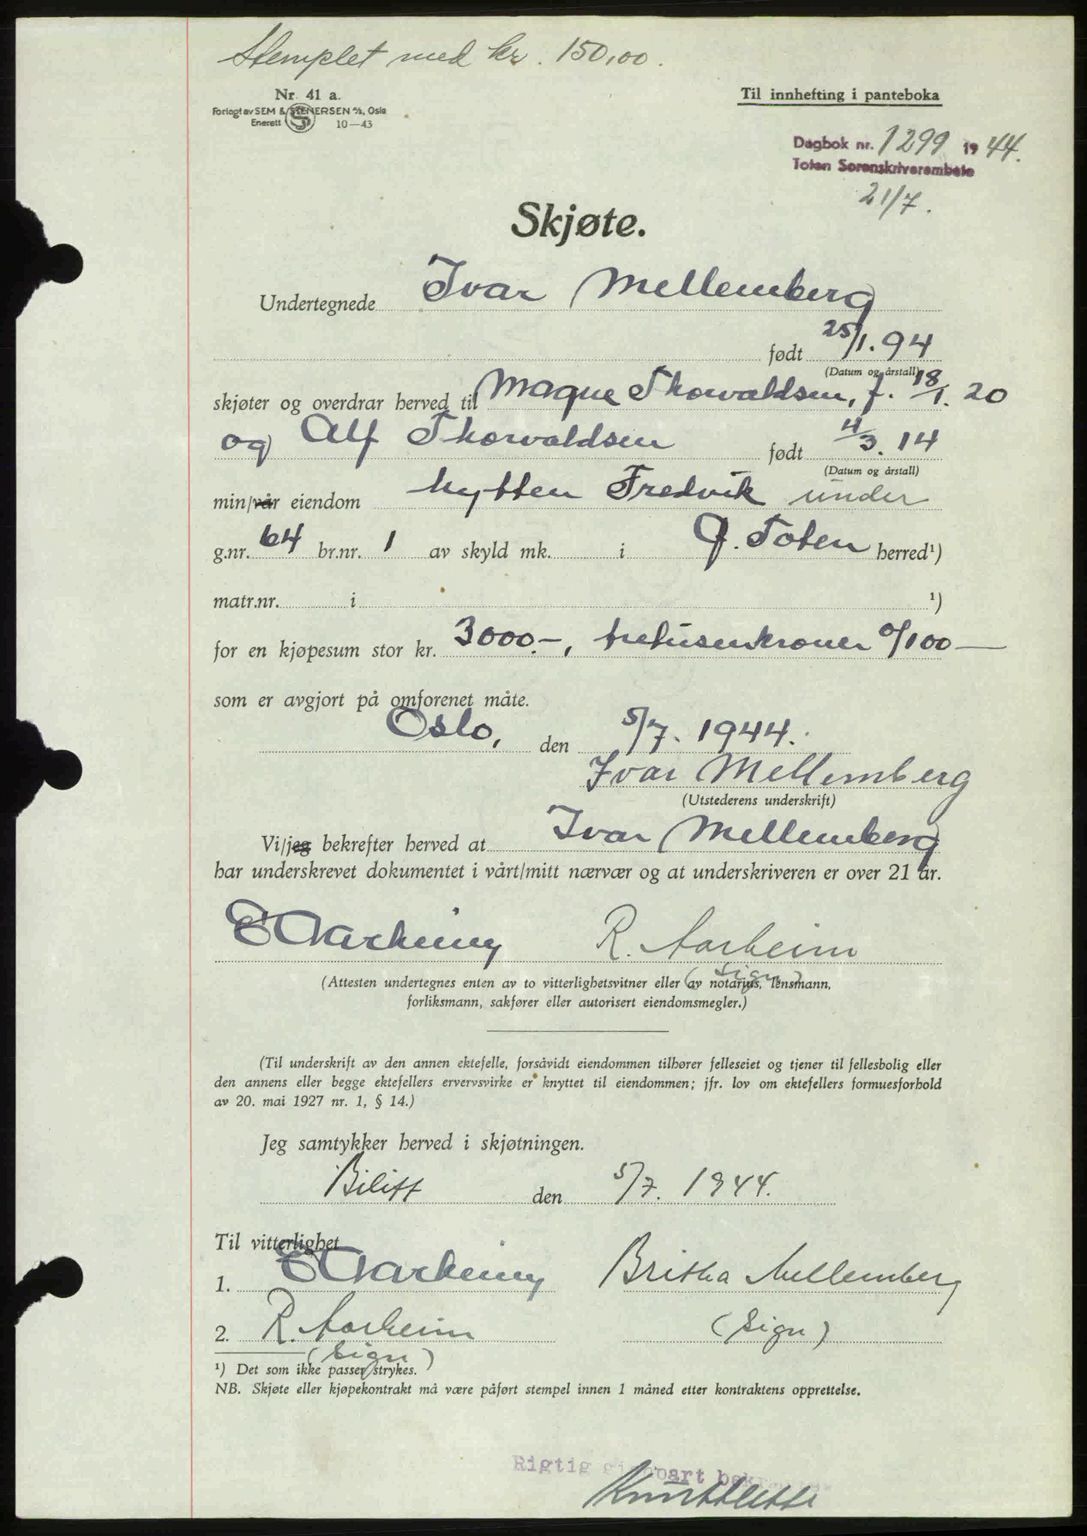 Stemplet med kr. 150,00.
Nr. 41 a.
Forlagt av SEM & STENERSEN A/S, Oslo
Enerett 10—43
Til innhefting i panteboka
Dagbok nr. 1299 1944.
Toten Sorenskriverembete
21/7.
Skjøte.
Undertegnede Ivar Mellemberg
født 25/1. 94
(Datum og årstall)
skjøter og overdrar herved til Magne Thorvaldsen, f. 18/1. 20
og Alf Thorvaldsen født 4/3. 14
(Datum og årstall)
min/vår eiendom hytten Fredvik under
g.nr. 64 br.nr. 1 av skyld mk. i Ø. Toten herred¹)
matr.nr. i ¹)
for en kjøpesum stor kr. 3000.—, tretusenkroner 0/100—
som er avgjort på omforenet måte.
Oslo, den 5/7. 1944.
Ivar Mellemberg
(Utstederens underskrift)
Vi/jeg bekrefter herved at Ivar Mellemberg
har underskrevet dokumentet i vårt/mitt nærvær og at underskriveren er over 21 år.
R. Aarheim
(Sign)
(Attesten undertegnes enten av to vitterlighetsvitner eller av notarius, lensmann,
forliksmann, sakfører eller autorisert eiendomsmegler.)
(Til underskrift av den annen ektefelle, forsåvidt eiendommen tilhører felleseiet og tjener til fellesbolig eller
den annens eller begge ektefellers ervervsvirke er knyttet til eiendommen; jfr. lov om ektefellers formuesforhold
av 20. mai 1927 nr. 1, § 14.)
Jeg samtykker herved i skjøtningen.
Bilitt den 5/7. 1944.
Til vitterlighet
1. Britha Mellemberg
2. R. Aarheim (Sign)
(Sign)
¹) Det som ikke passer strykes.
NB. Skjøte eller kjøpekontrakt må være påført stempel innen 1 måned etter kontraktens opprettelse.
Rigtig gjenpart